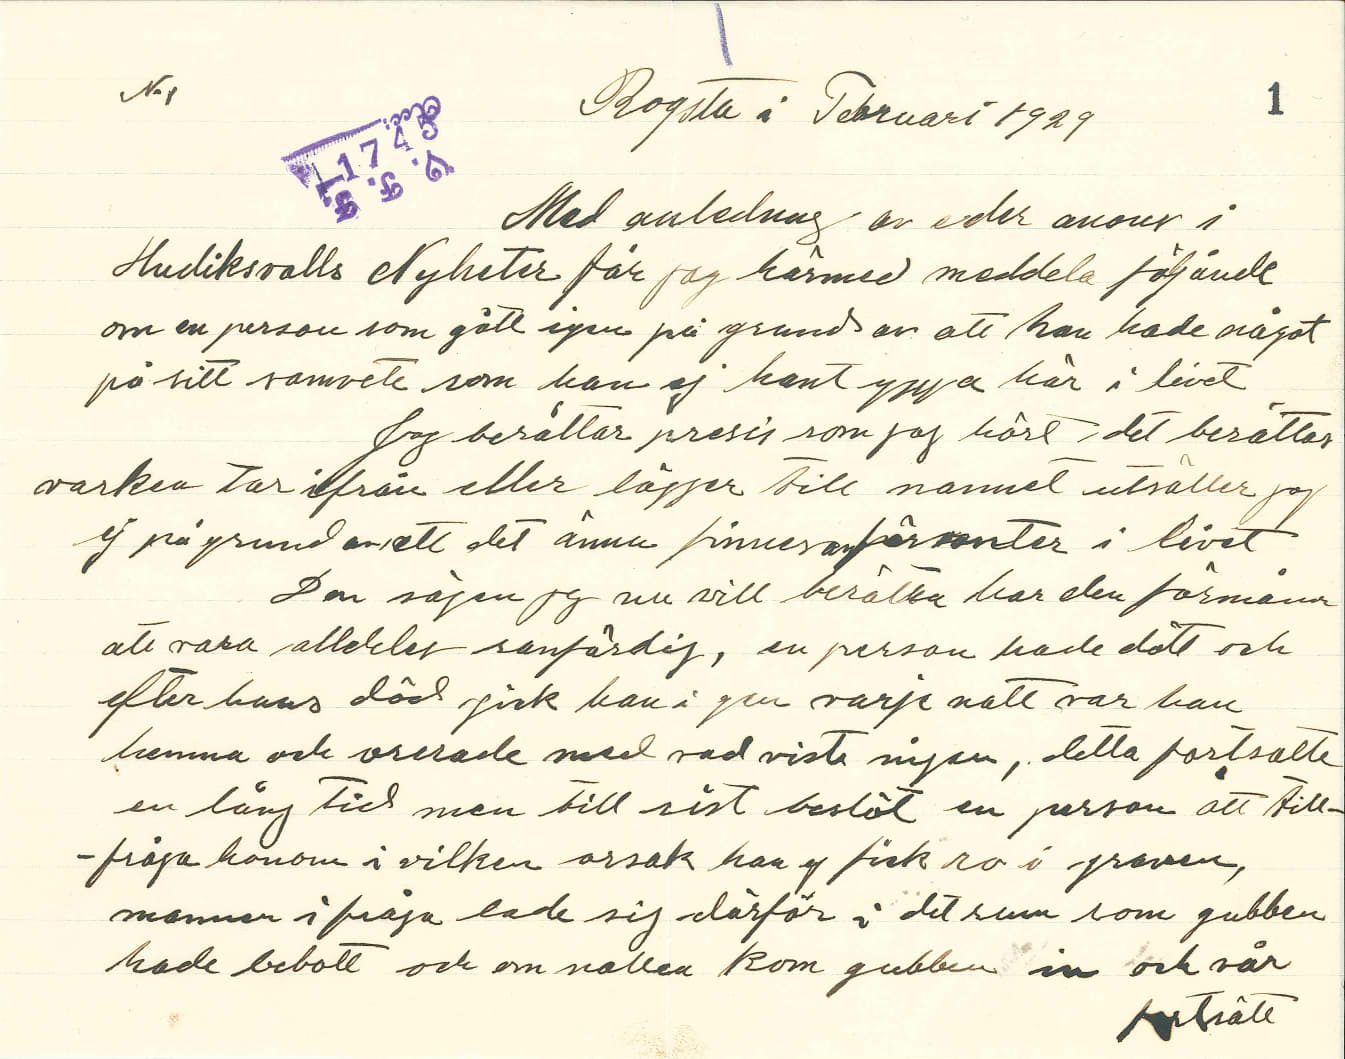 No 1
1
Rogsta i Februari 1929
V. F. F.
Acc. 1748
Med anledning av eder anons i
Hudiksvalls Nyheter får jag härmed meddela följande
om en person som gått igen på grund av att han hade något
på sitt samvete som han ej hant yppa här i livet
Jag berättar presis som jag hört det berättas
varken tar ifrån eller lägger till namnet utsätter jag
ej på grund av att det ännu finnes anförvanter i livet
Den sägen jag nu vill berätta har den förmånn
att vara alldeles sanfärdig, en person hade dött och
efter hans död gick han i gen varje natt var han
hemma och oserade med vad viste ingen, detta fortsatte
en lång tid men till sist beslöt en person att till-
-fråga honom i vilken orsak han ej fick ro i graven,
mannen i fråga lade sig därför i det rum som gubben
hade bebott och om natten kom gubben in och vår
fortsätt